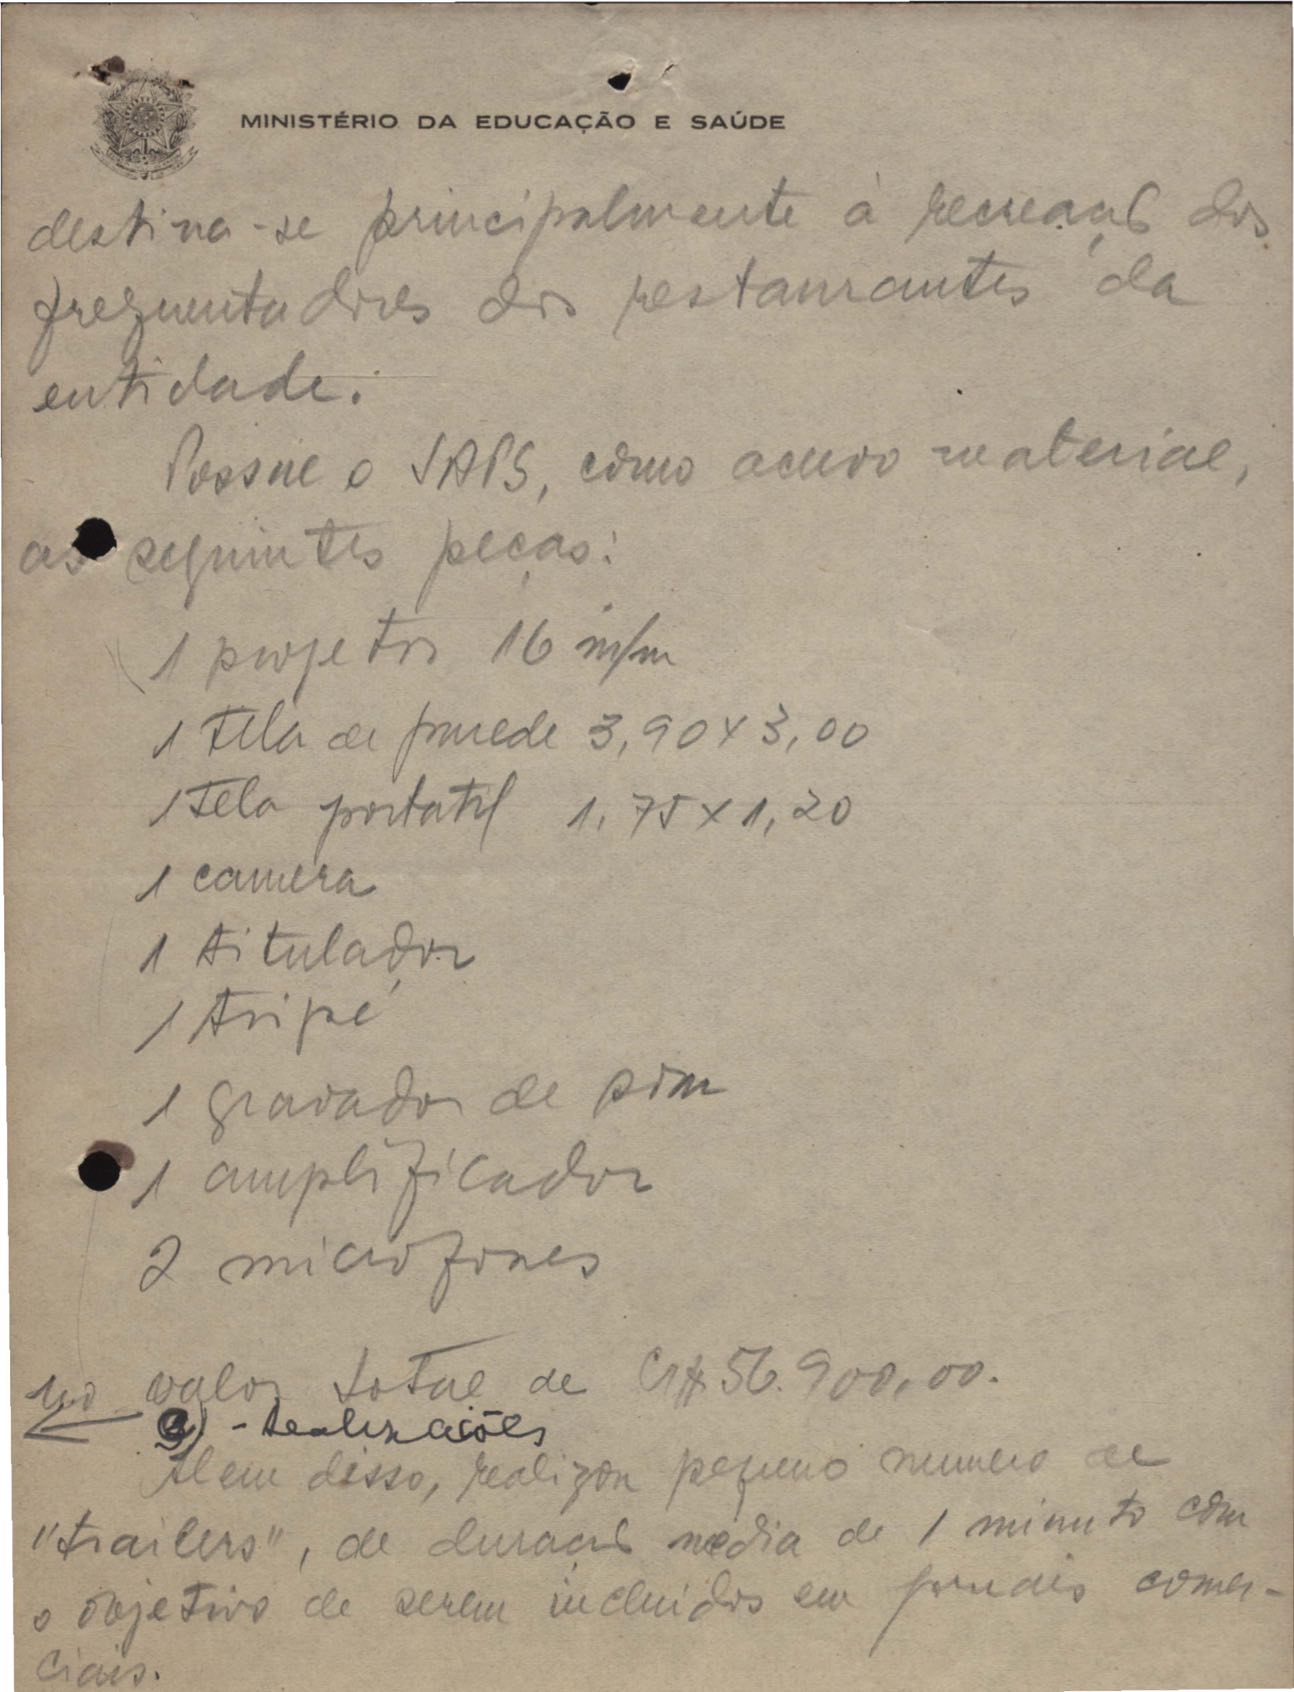 MINISTÉRIO DA EDUCAÇÃO E SAÚDE
destina-se principalmente à recreação dos
frequentadores dos restaurantes da
entidade.
Possue o SAPS, como acervo material,
as seguintes peças:
1 projetor 16 m/m
1 tela de parede 3,90 x 3,00
1 tela portatil 1,75 x 1,20
1 camera
1 titulador
1 tripé
1 gravador de som
1 amplificador
2 microfones
no valor total de Cr$ 56.900,00.
3) - Realizações
Alem disso, realizou pequeno numero de
"trailers", de duração media de 1 minuto com
o objetivo de serem incluidos em jornais comer-
ciais.